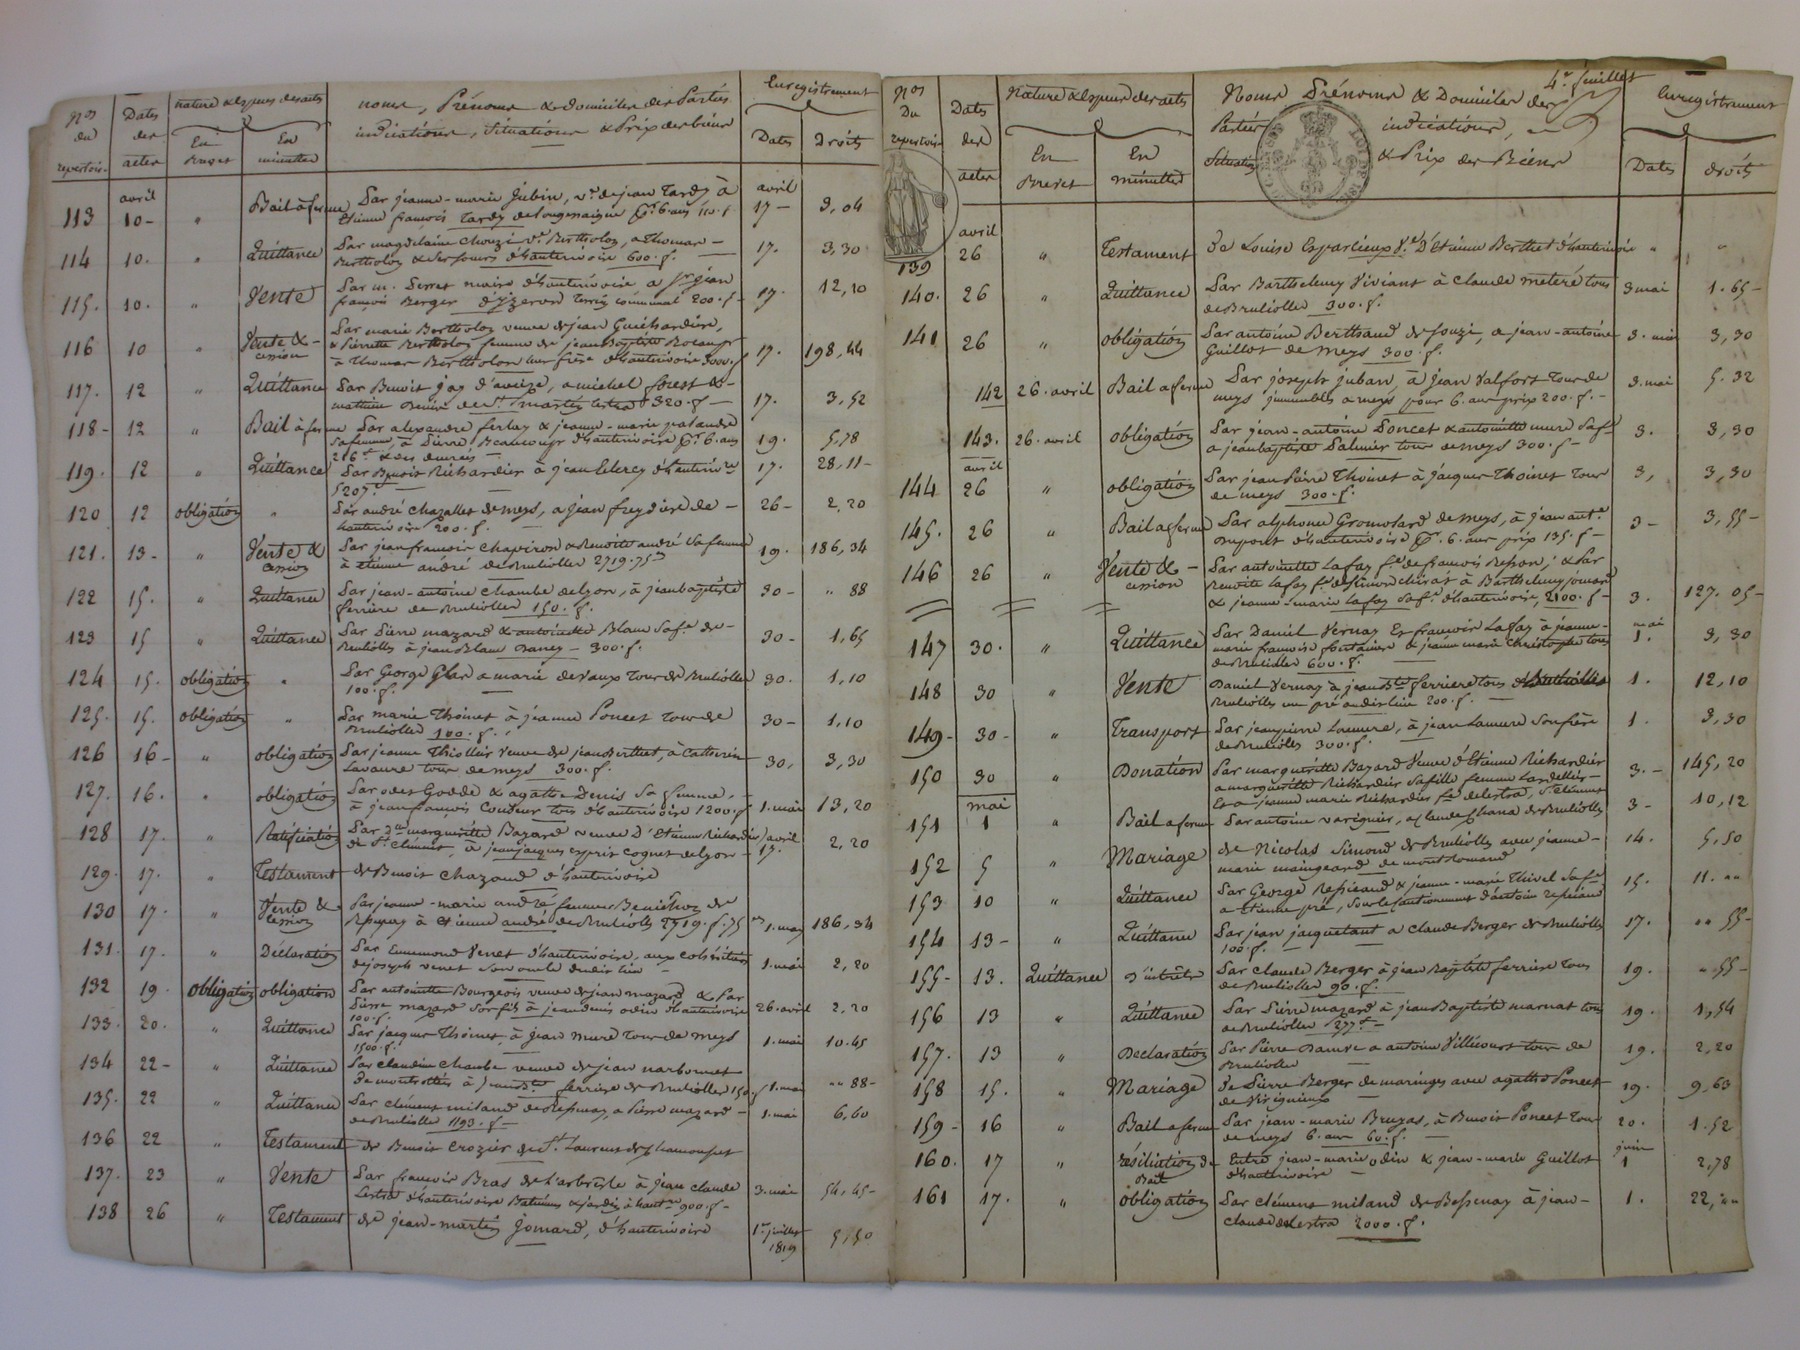 Nos du repertoire
Dates des actes
nature & espèces des actes
En Brevet
En minutte
noms, Prénoms & domiciles des Parties
indications, Situations & Prix des biens
Enregistrement
Dates
Droits
avril avril
113 10 - " Bail à ferme Par jeanne-marie jubin, ve de jean Tardy à 17 - 3,04
Etienne françois Tardy de Longessaigne pr 6 ans 110. f
114 10. " Quittance Par magdelaine Chouzi ve Bertholon, a Thomas - 17. 3,30
Bertholon & ses sœurs d'hauterivoire 600. f.
115. 10. " Vente Par m. Serret maire d'hauterivoire a sr jean 17. 12,10
françois Berger d'yzeron terrein communal 200. f -
116 10 " Vente & - cession Par marie Bertholon veuve de jean Guichardière, 17. 198,44
& Pierrette Bertholon femme de jean Baptiste
à Thomas Bertholon leur frère d'hauterivoire 3000. f
117. 12 " Quittance Par Benoit jay d'aveize, a michel forest & - 17. 3,52
mathieu de St martin lestra 320. f -
118 - 12 " Bail à ferme Par alexandre ferlay & jeanne-marie 19. 5,78
sa femme, à Pierre Beaucoup d'hauterivoire pr 6. ans
216 f & des denrées -
119. 12 " Quittance Par Benoit Richardier à jean Leclercq d'hauterivoire 17. 28,11 -
5207 f
120 12 obligation " Par andré chazallet de meys, a jean freydière de - 26 - 2,20
hauterivoire 200. f.
121. 13 - " Vente & cession Par jean françois chapiron & Benoitte andré sa femme 19. 186,34
à étienne andré de Brulioller 2719. 75 c
122 15. " Quittance Par jean-antoine chambe de lyon, à jean baptiste 30 - " 88
ferrière de Brulioller 150. f.
123 15 " Quittance Par Pierre mazard & antoinette Blanc sa fe de - 30 - 1,65
Brulioller à jean Blanc Dancy - 300. f.
124 15. obligation " Par George Glas a marie devaux Tous de Brulioller 30. 1,10
100. f. -
125. 15. obligation " Par marie Thoinet à jeanne Poncet Tous de 30 - 1,10
Brulioller 100. f.
126 16 - " obligation Par jeanne Thiollier veuve de jean Berthet, à Catherin 30, 3,30
Lavaure tous de meys 300. f.
127. 16. " obligation Par odet Godde & agathe Denis sa femme, - 1. mai 13,20
à jean françois Coudeur tous d'hauterivoire 1200. f
128 17. " Ratification Par de marguerite Bazard veuve d'Etienne Richardier avril 17. 2,20
de St clément, à jean jacques esprit cognet de lyon -
129. 17. " Testament de Benoit Chazaud d'hauterivoire
130 17. " Vente & cession Par jeanne-marie andré femme de 1. may 186,34
à étienne andré de Brulioller 2719. f. 75 c
131. 17. " Déclaration Par Ennemond Venet d'hauterivoire, aux cohéritiers 1. mai 2,20
de joseph venet son oncle dudit lieu -
132 19. obligation obligation Par antoinette Bourgeois veuve de jean mazard & par 26. avril 2,20
Pierre mazard son fils à jean denis odin d'hauterivoire
100. f.
133. 20. " Quittance Par jacques Thoinet, à jean mure Tous de meys 1. mai 10.45
1500. f.
134 22 - " Quittance Par claudine chambe veuve de jean narbonnet 1. mai " 88 -
de montrottier à jean Bte ferrière de Brulioller 150. f
135. 22 " Quittance Par clément miland de Bessenay a Pierre mazard - 1. mai 6,60
de Brulioller 1193. f -
136 22 " Testament de Benoit Crozier de St. Laurent de Chamousset
137. 23 " Vente Par françois Bras de L'arbresle à jean claude 3. mai 54,45 -
Lestra d'hauterivoire Batimens & jardin à haut re 900. f -
138 26 " Testament de jean-martin jomard, d'hauterivoire 1er juillet 1819 5,50
4e feuillet
Nos Du repertoire
Dates des actes
Nature & espèces des actes
En Brevet
En minutte
Noms Prénoms & Domiciles des
Parties indications,
Situations & Prix des Biens
Enregistrement
Dates
droits
avril
139 26 " Testament De Louise Esparcieux Ve d'Etienne Berthet d'hauterivoire " "
140. 26 " Quittance Par Barthelemy Viviant à Claude meteré tous 3 mai 1.65 -
de Brulioller 300. f.
141 26 " obligation Par antoine Berthaud de souzi, a jean-antoine 3. mai 3,30
Guillot de meys 300. f.
142 26. avril Bail a ferme Par joseph juban, à jean Valfort Tous de 3. mai 5.32
meys immeubles a meys pour 6. ans prix 200. f. -
143. 26. avril obligation Par jean-antoine Poncet & antoinette mure sa fe 3. 3,30
a jean baptiste Palmier tous de meys 300. f -
avril
144 26 " obligation Par jean Pierre Thoinet à jacques Thoinet Tous 3, 3,30
de meys 300. f.
145. 26 " Bail a ferme Par alphonse Gromolard de meys, à jean ante 3 - 3,55 -
Dupont d'hauterivoire pr. 6. ans prix 135. f -
146 26 " Vente & - cession Par antoinette Lafay fe de françois Resson; & Par
Benoite Lafay fe de Simon chirat à Barthelemy jomard
& jeanne-marie Lafay sa fe d'hauterivoire, 2100. f - 3. 127.05 -
147 30. " Quittance Par Daniel Vernay Et françois Lafay à jeanne - mai 1. 3,30
marie françoise fontaine & jeanne marie Christophe tous
de Brulioller 600. f.
148 30 " Vente Daniel Vernay à jean Bte ferriere tous de Brulioller 1. 12,10
Brulioller un pré audit lieu 200. f. -
149 - 30 - " Transport Par jean pierre Lameure, à jean Lameure son frère 1. 3,30
de Brulioller 300. f.
150 30 " Donation Par marguerite Bazard Veuve d'Etienne Richardier 3. - 145,20
a marguerite Richardier sa fille femme
Et a jeanne marie Richardier fe delestra, St clément
mai
151 1 " Bail a ferme Par antoine varignier, a Claude de Brulioller 3 - 10,12
152 5 " Mariage de Nicolas Simond de Brulioller avec jeanne - 14. 5,50
marie maingeard de montromand
153 10 " Quittance Par George Ressicaud & jeanne-marie Thivel sa fe 15. 11. "
a Etienne pré, sous le cautionnement d'antoine ressicaud
154 13 - " Quittance Par jean jacquetant a Claude Berger de Brulioller 17. " 55 -
100. f.
155 - 13. Quittance D'intérêts Par Claude Berger à jean Baptiste ferriere tous 19. " 55 -
de Brulioller 90. f.
156 13 " Quittance Par Pierre mazard à jean Baptiste marnat tous 19. 1,54
de Brulioller 277 f -
157. 13 " Declaration Par Pierre a antoine Villecourt tous de 19. 2,20
Brulioller
158 15. " Mariage De Pierre Berger de maringes avec agathe Poncet 19. 9,63
de Viricieux
159 - 16 " Bail a ferme Par jean-marie Bruyas, à Benoit Poncet Tous 20. 1.52
de meys 6. ans 60. f.
160. 17 " résiliation de Bail Entre jean-marie odin & jean-marie Guillot juin 1 2,78
d'hauterivoire -
161 17. " obligation Par clément miland de Bessenay à jean - 1. 22, "
claude delestra 2000. f.